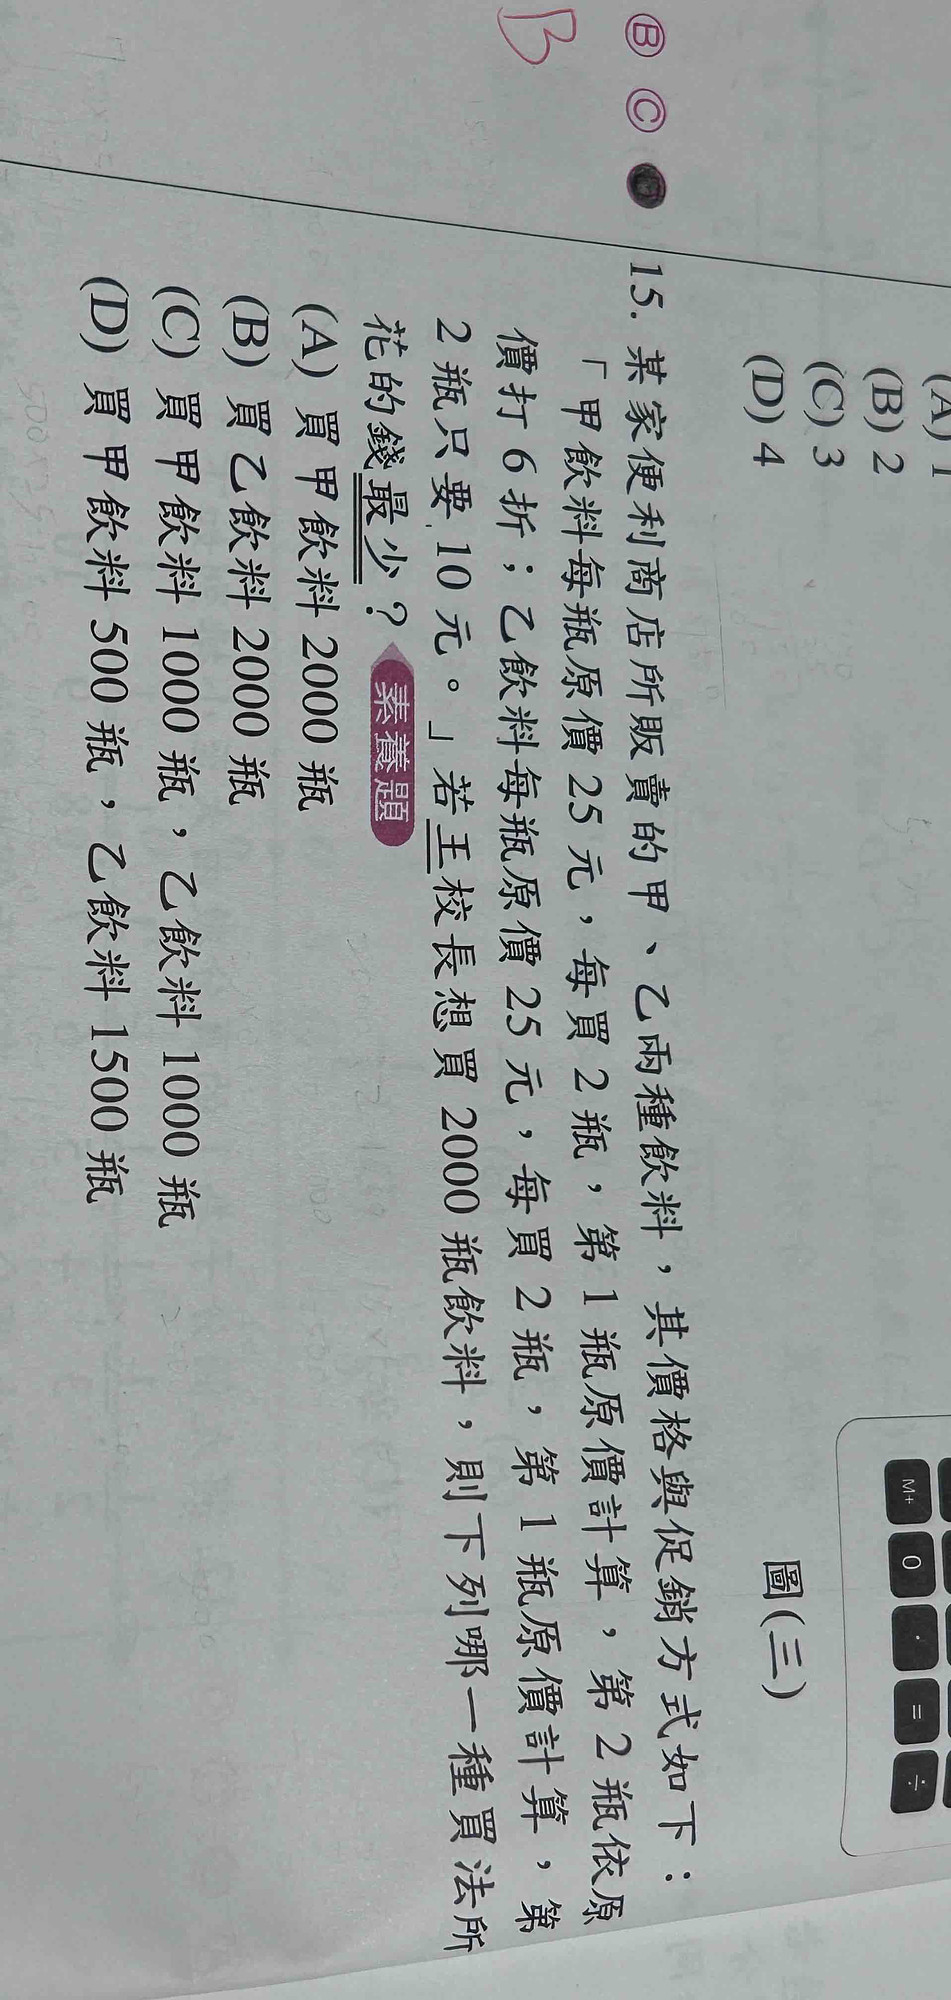 (A) 1
(B) 2
(C) 3
(D) 4
M+ 0 · = ÷
圖(三)
Ⓑ Ⓒ
B
15. 某家便利商店所販賣的甲、乙兩種飲料，其價格與促銷方式如下：
「甲飲料每瓶原價 25 元，每買 2 瓶，第 1 瓶原價計算，第 2 瓶依原
價打 6 折；乙飲料每瓶原價 25 元，每買 2 瓶，第 1 瓶原價計算，第
2 瓶只要 10 元。」若王校長想買 2000 瓶飲料，則下列哪一種買法所
花的錢最少？ 素養題
(A) 買甲飲料 2000 瓶
(B) 買乙飲料 2000 瓶
(C) 買甲飲料 1000 瓶，乙飲料 1000 瓶
(D) 買甲飲料 500 瓶，乙飲料 1500 瓶